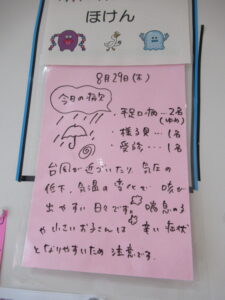 ほけん
8月29日(木)
今日の指欠
・手足口病…2名
(ゆめ)
・様子見…1名
・受診…1名
台風が近づいたり、気圧の
低下、気温の変化で 咳が
出やすい日々です。喘息の子
や小さいお子さんは 辛い症状
となりやすいため 注意です。